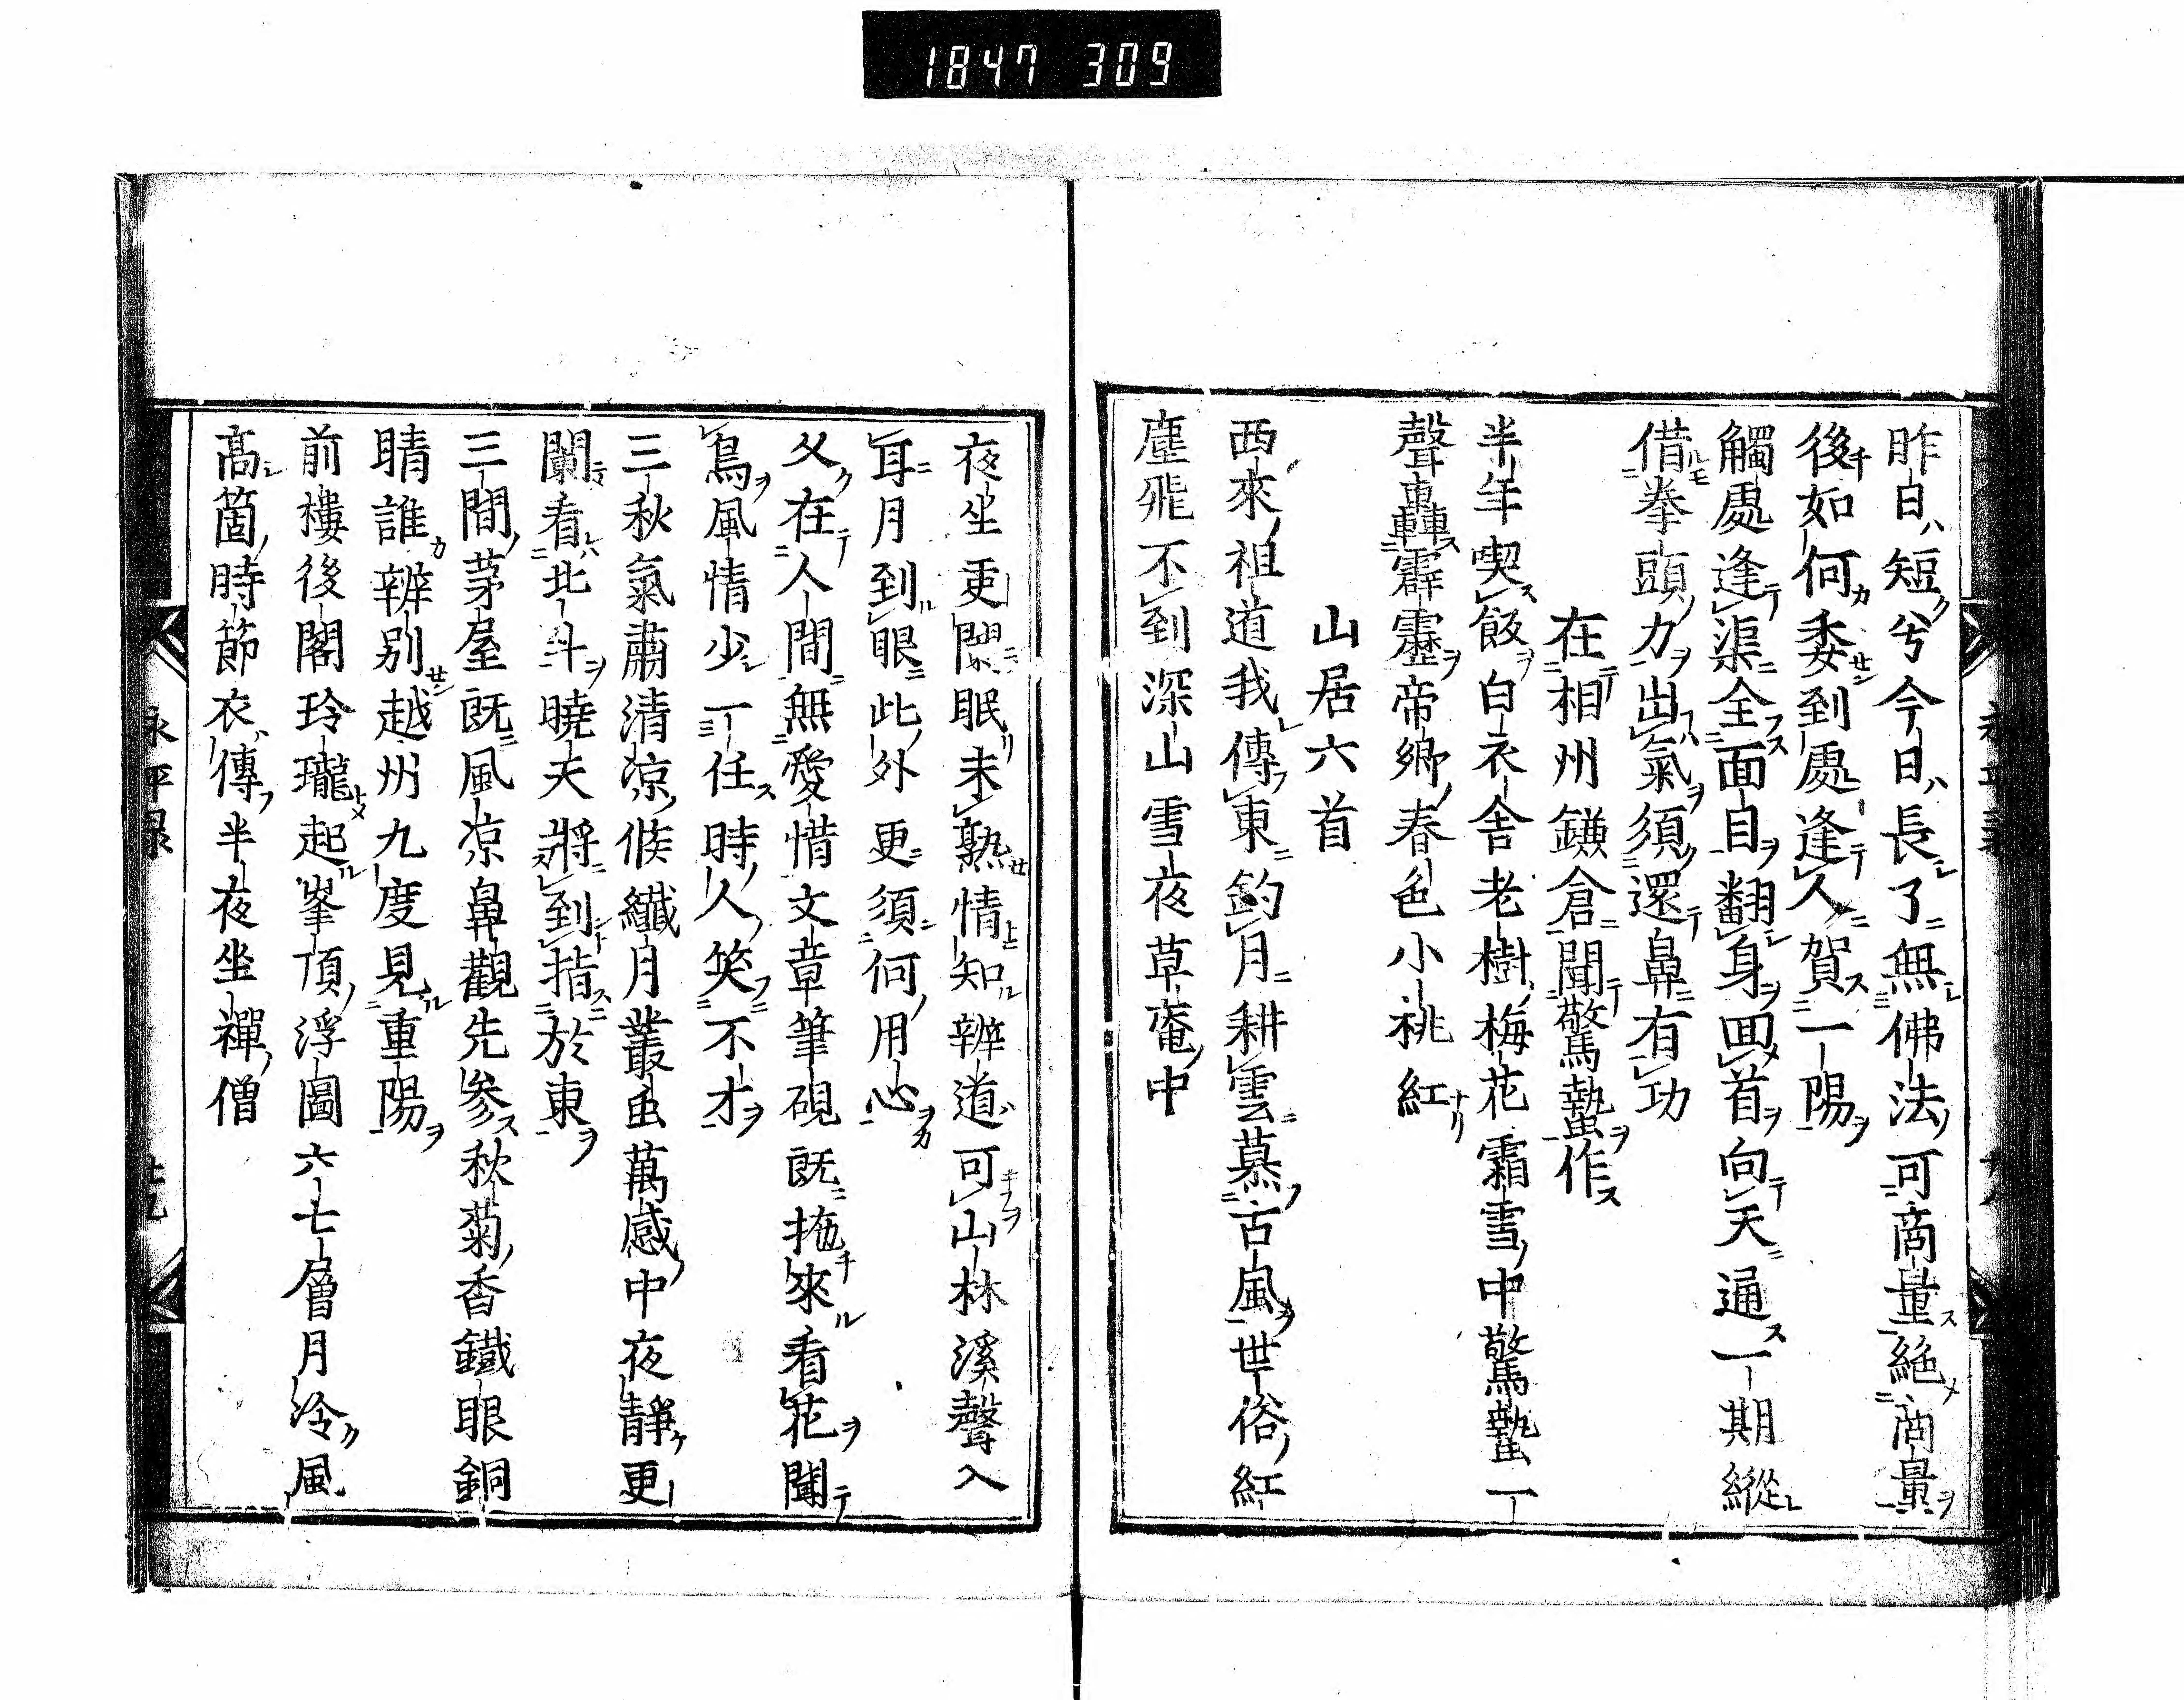 1847 309
昨日短兮今日長了無佛法可商量絶商量
後如何委到處逢人賀一陽
觸處逢渠全面目翻身回首向天通一期縱
借拳頭力出氣須還鼻有功
在相州鎌倉聞驚蟄作
半年喫飯白衣舍老樹梅花霜雪中驚蟄一
聲轟霹靂帝鄉春色小桃紅
山居六首
西來祖道我傳東釣月耕雲慕古風世俗紅
塵飛不到深山雪夜草菴中
夜坐更闌眠未熟情知辨道可山林溪聲入
耳月到眼此外更須何用心
久在人間無愛惜文章筆硯既抛來看花聞
鳥風情少一任時人笑不才
三秋氣肅清凉候纖月叢虫萬感中夜靜更
闌看北斗曉天將到指於東
三間茅屋既風凉鼻觀先參秋菊香鐵眼銅
睛誰辨別越州九度見重陽
前樓後閣玲瓏起峯頂浮圖六七層月冷風
高箇時節衣傳半夜坐禪僧
永平録